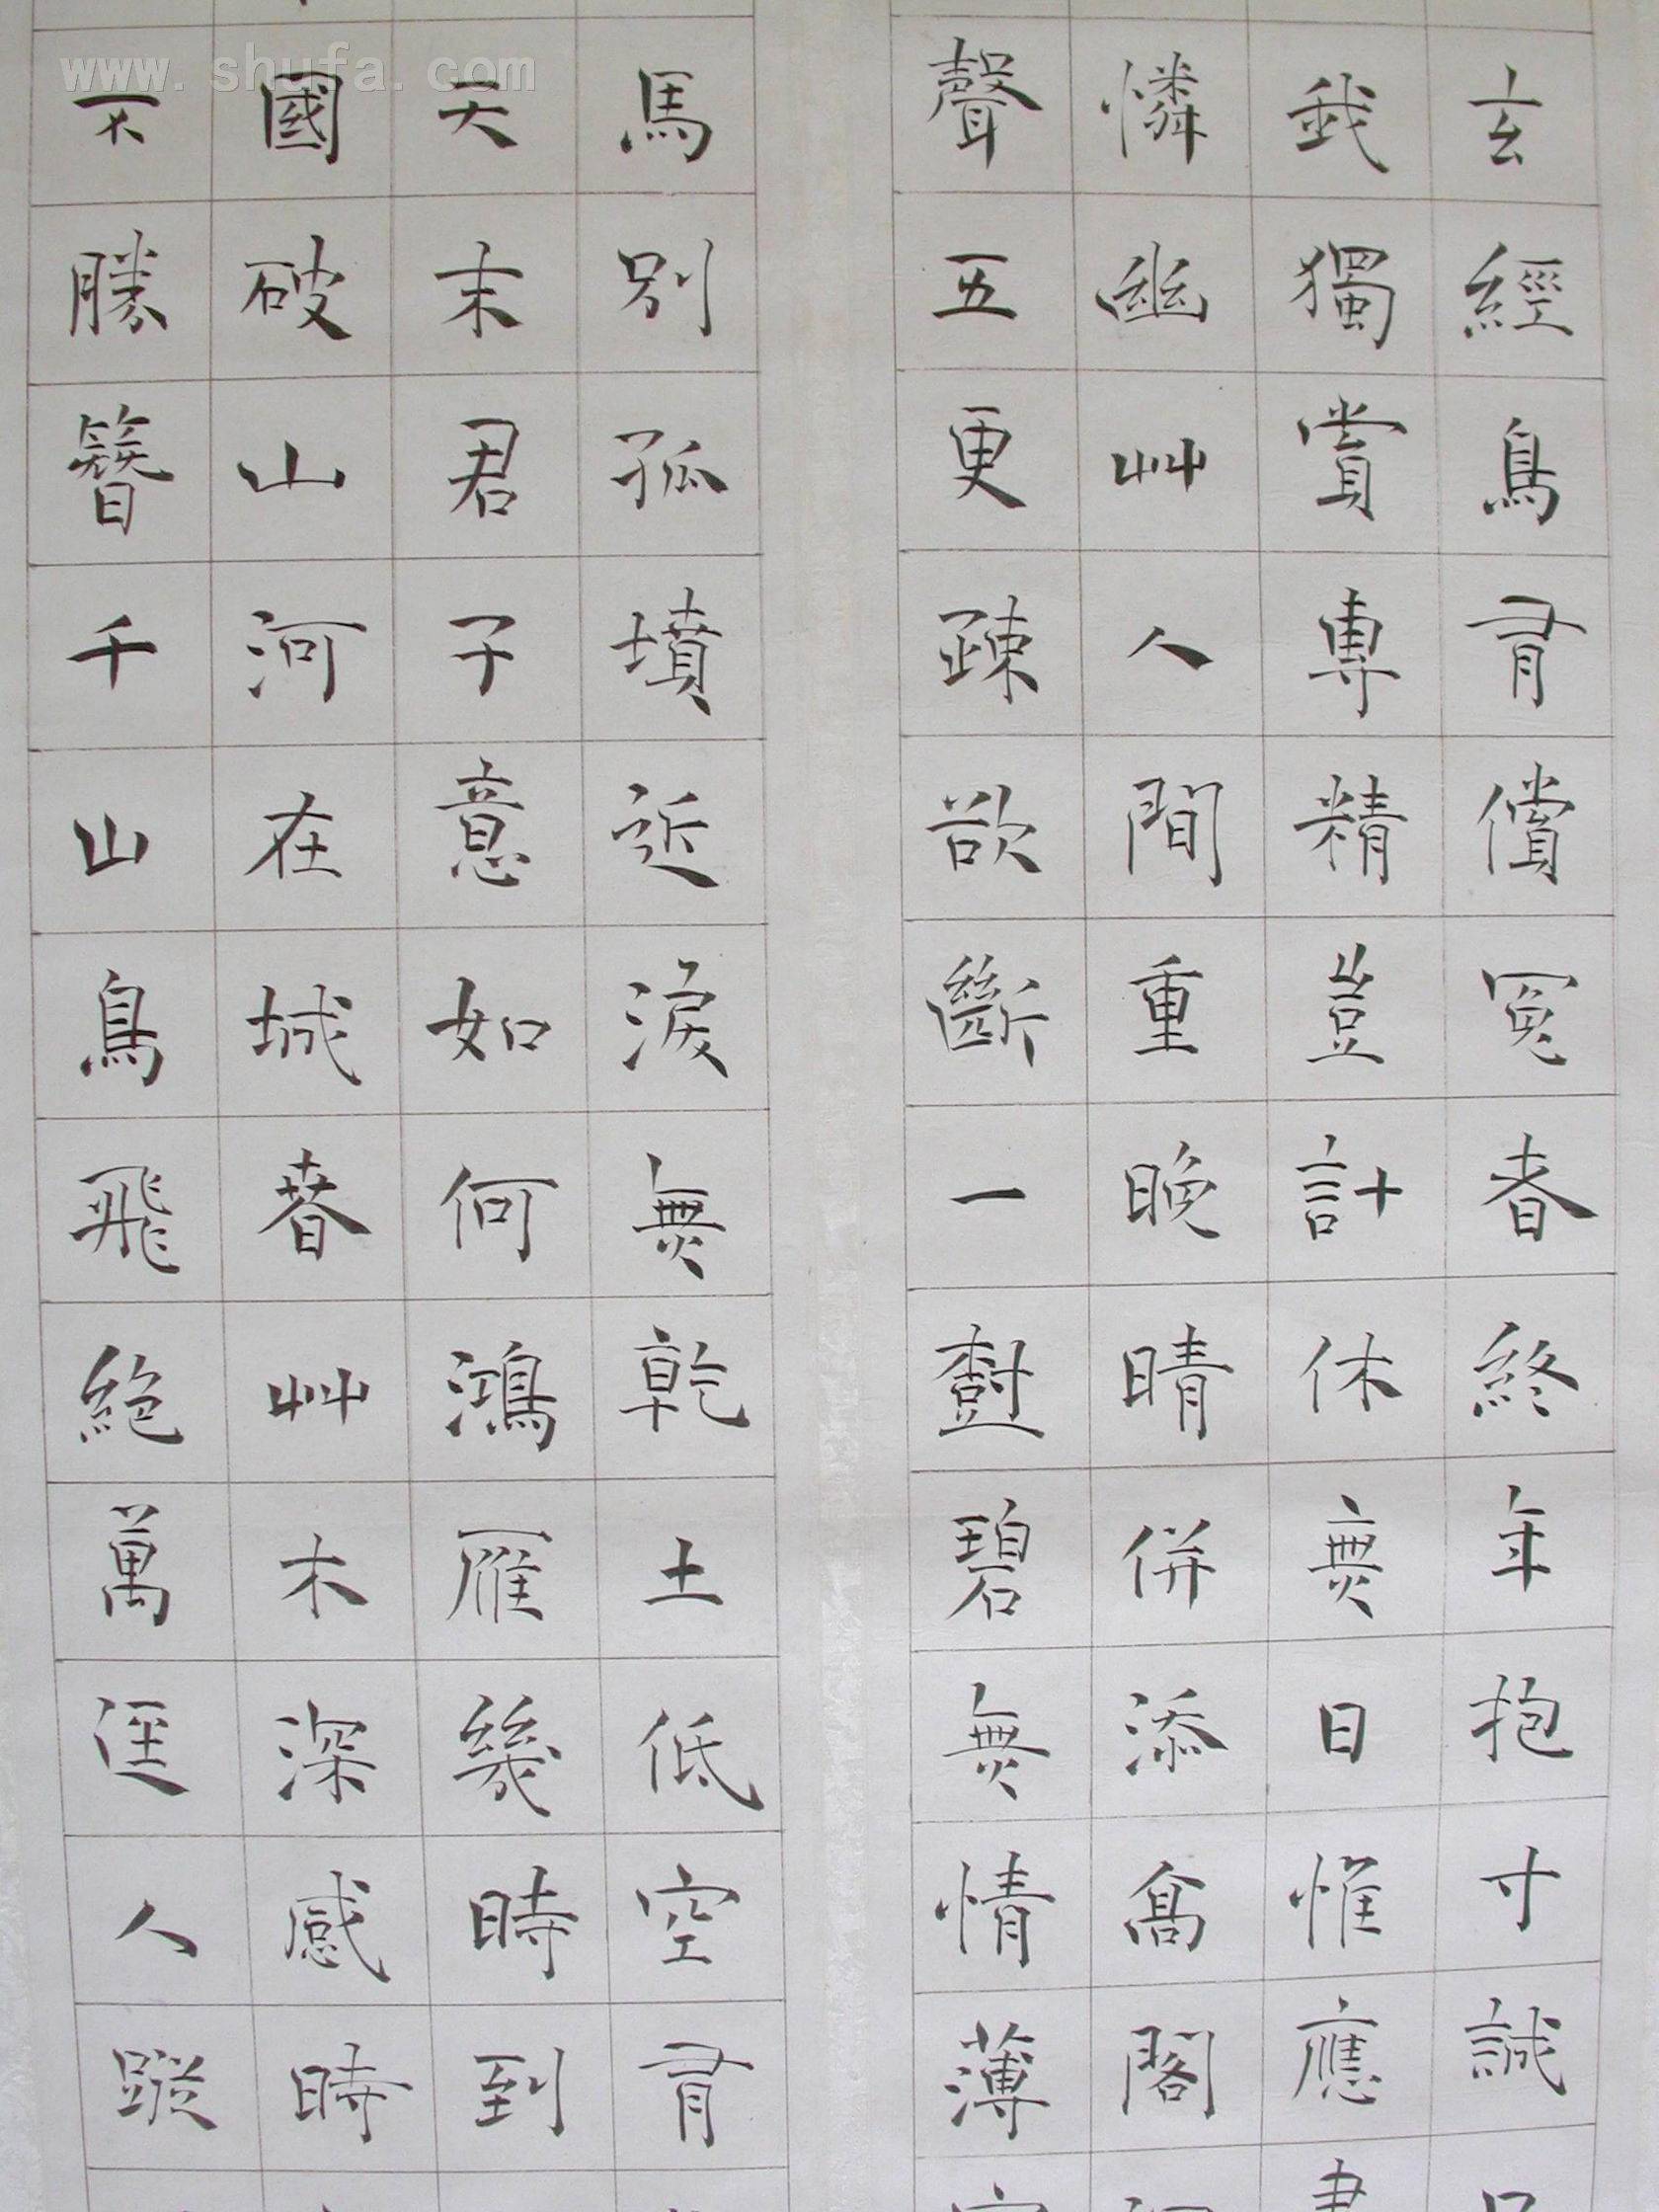 玄經鳥有償冤者終年抱寸誠
我獨賞專精豈計休無日惟應
憐幽艸人間重晚晴併添高閣
聲五更疎欲斷一樹碧無情薄
馬別孤墳近淚無乾土低空有
天末君子意如何鴻雁幾時到
國破山河在城春艸木深感時
不勝簪千山鳥飛絕萬徑人蹤
www.shufa.com